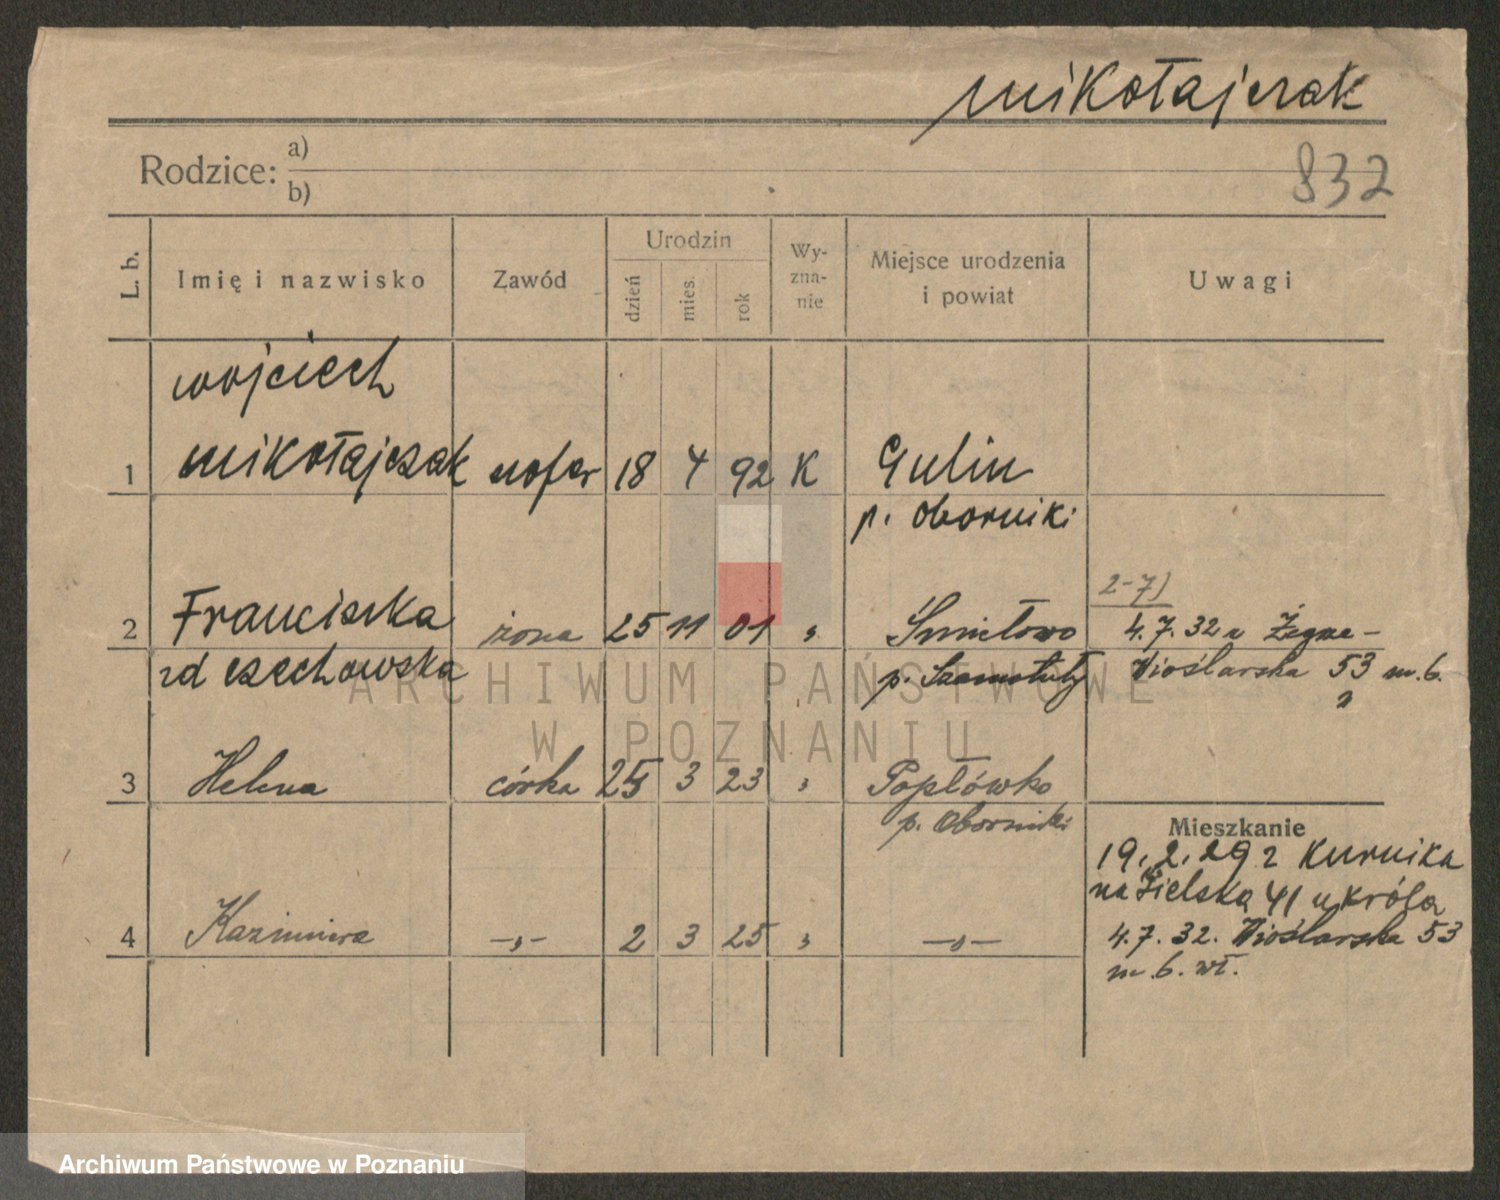 Mikołajczak
Rodzice: a)
b)
832
L. b.
Imię i nazwisko
Zawód
Urodzin
dzień
mies.
rok
Wy-
zna-
nie
Miejsce urodzenia
i powiat
Uwagi
wojciech
1 mikołajczak szofer 18 4 92 K Gulin
p. oborniki
2-7)
2 Franciszka żona 25 11 01 " Śmiełowo 4.7.32
zd czechowska p. Szamotuły Wioślarska 53 m. 6.
3 Helena córka 25 3 23 " Popłówko
p. Oborniki
Mieszkanie
19. 2. 29 z Kurnika
na Zielską 41 u króla
4 Kazimiera -"- 2 3 25 " -"- 4.7.32. Wioślarska 53
m. 6. wł.
ARCHIWUM PAŃSTWOWE
W POZNANIU
Archiwum Państwowe w Poznaniu